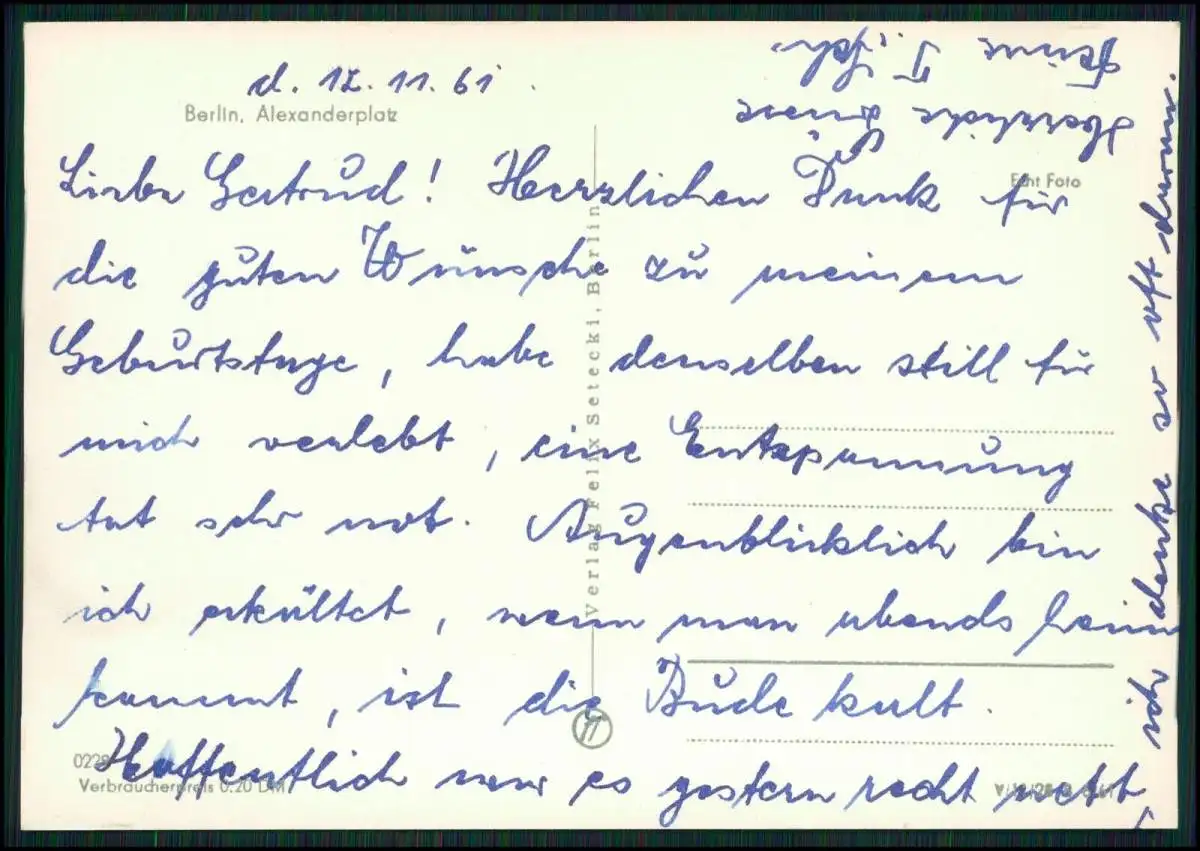 d. 12.11.61.
Berlin, Alexanderplatz
Echt Foto
Liebe Gertrud! Herzlichen Dank für
die guten Wünsche zu meinem
Geburtstage, habe denselben still für
mich verlebt, eine Entspannung
tat sehr not. Augenblicklich bin
ich erkältet, wenn man abends heim
kommt, ist die Bude kalt.
Hoffentlich war es gestern recht nett,
ich denke so oft darum.
Herzliche Grüße
Deine
Verlag Felix Setecki, Berlin
0229
Verbraucherpreis 0.20 DM